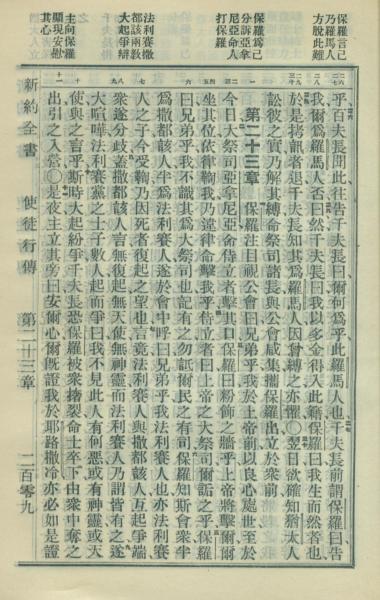 保羅言己
乃羅馬人
方脫此難
保羅爲己
分訴亞拿
尼亞命人
打保羅
法利賽撒
都該兩敎
大起爭辯
主向保羅
顯現安慰
其心
乎百夫長聞此往告千夫長曰爾何爲乎此羅馬人也千夫長前謂保羅曰告
我爾爲羅馬人否曰然千夫長曰我以多金得入此籍保羅曰我生而然者也
於是拷訊者退千夫長知其爲羅馬人因曾縛之亦懼○翌日欲確知猶太人
訟彼之實乃解其縛命祭司諸長與公會咸集攜保羅出立於衆前
第二十三章 保羅注目視公會曰兄弟乎我於上帝前以良心處世至於
今日大祭司亞拿尼亞命侍立者擊其口保羅曰粉飾之牆乎上帝將擊爾爾
坐其位依律鞫我乃違律命擊我乎侍立者曰上帝之大祭司爾詬之乎保羅
曰兄弟乎我不識其爲大祭司也記有之勿詆爾民之有司保羅知斯會衆半
爲撒都該人半爲法利賽人遂於會中呼曰兄弟乎我法利賽人也亦法利賽
人之子今受鞫乃因死者復起之望也言竟法利賽人與撒都該人互起爭端
衆遂分歧蓋撒都該人言無復起無天使無神靈而法利賽人乃謂皆有之遂
大喧嘩法利賽黨之士子數人起而爭曰我不見此人有何惡或有神靈或天
使與之言乎斯時大起紛爭千夫長恐保羅被衆撦裂命士卒下由衆中奪之
出引之入營○是夜主立其旁曰安爾心爾旣證我於耶路撒冷亦必如是證
新約全書 使徒行傳 第二十三章 二百零九